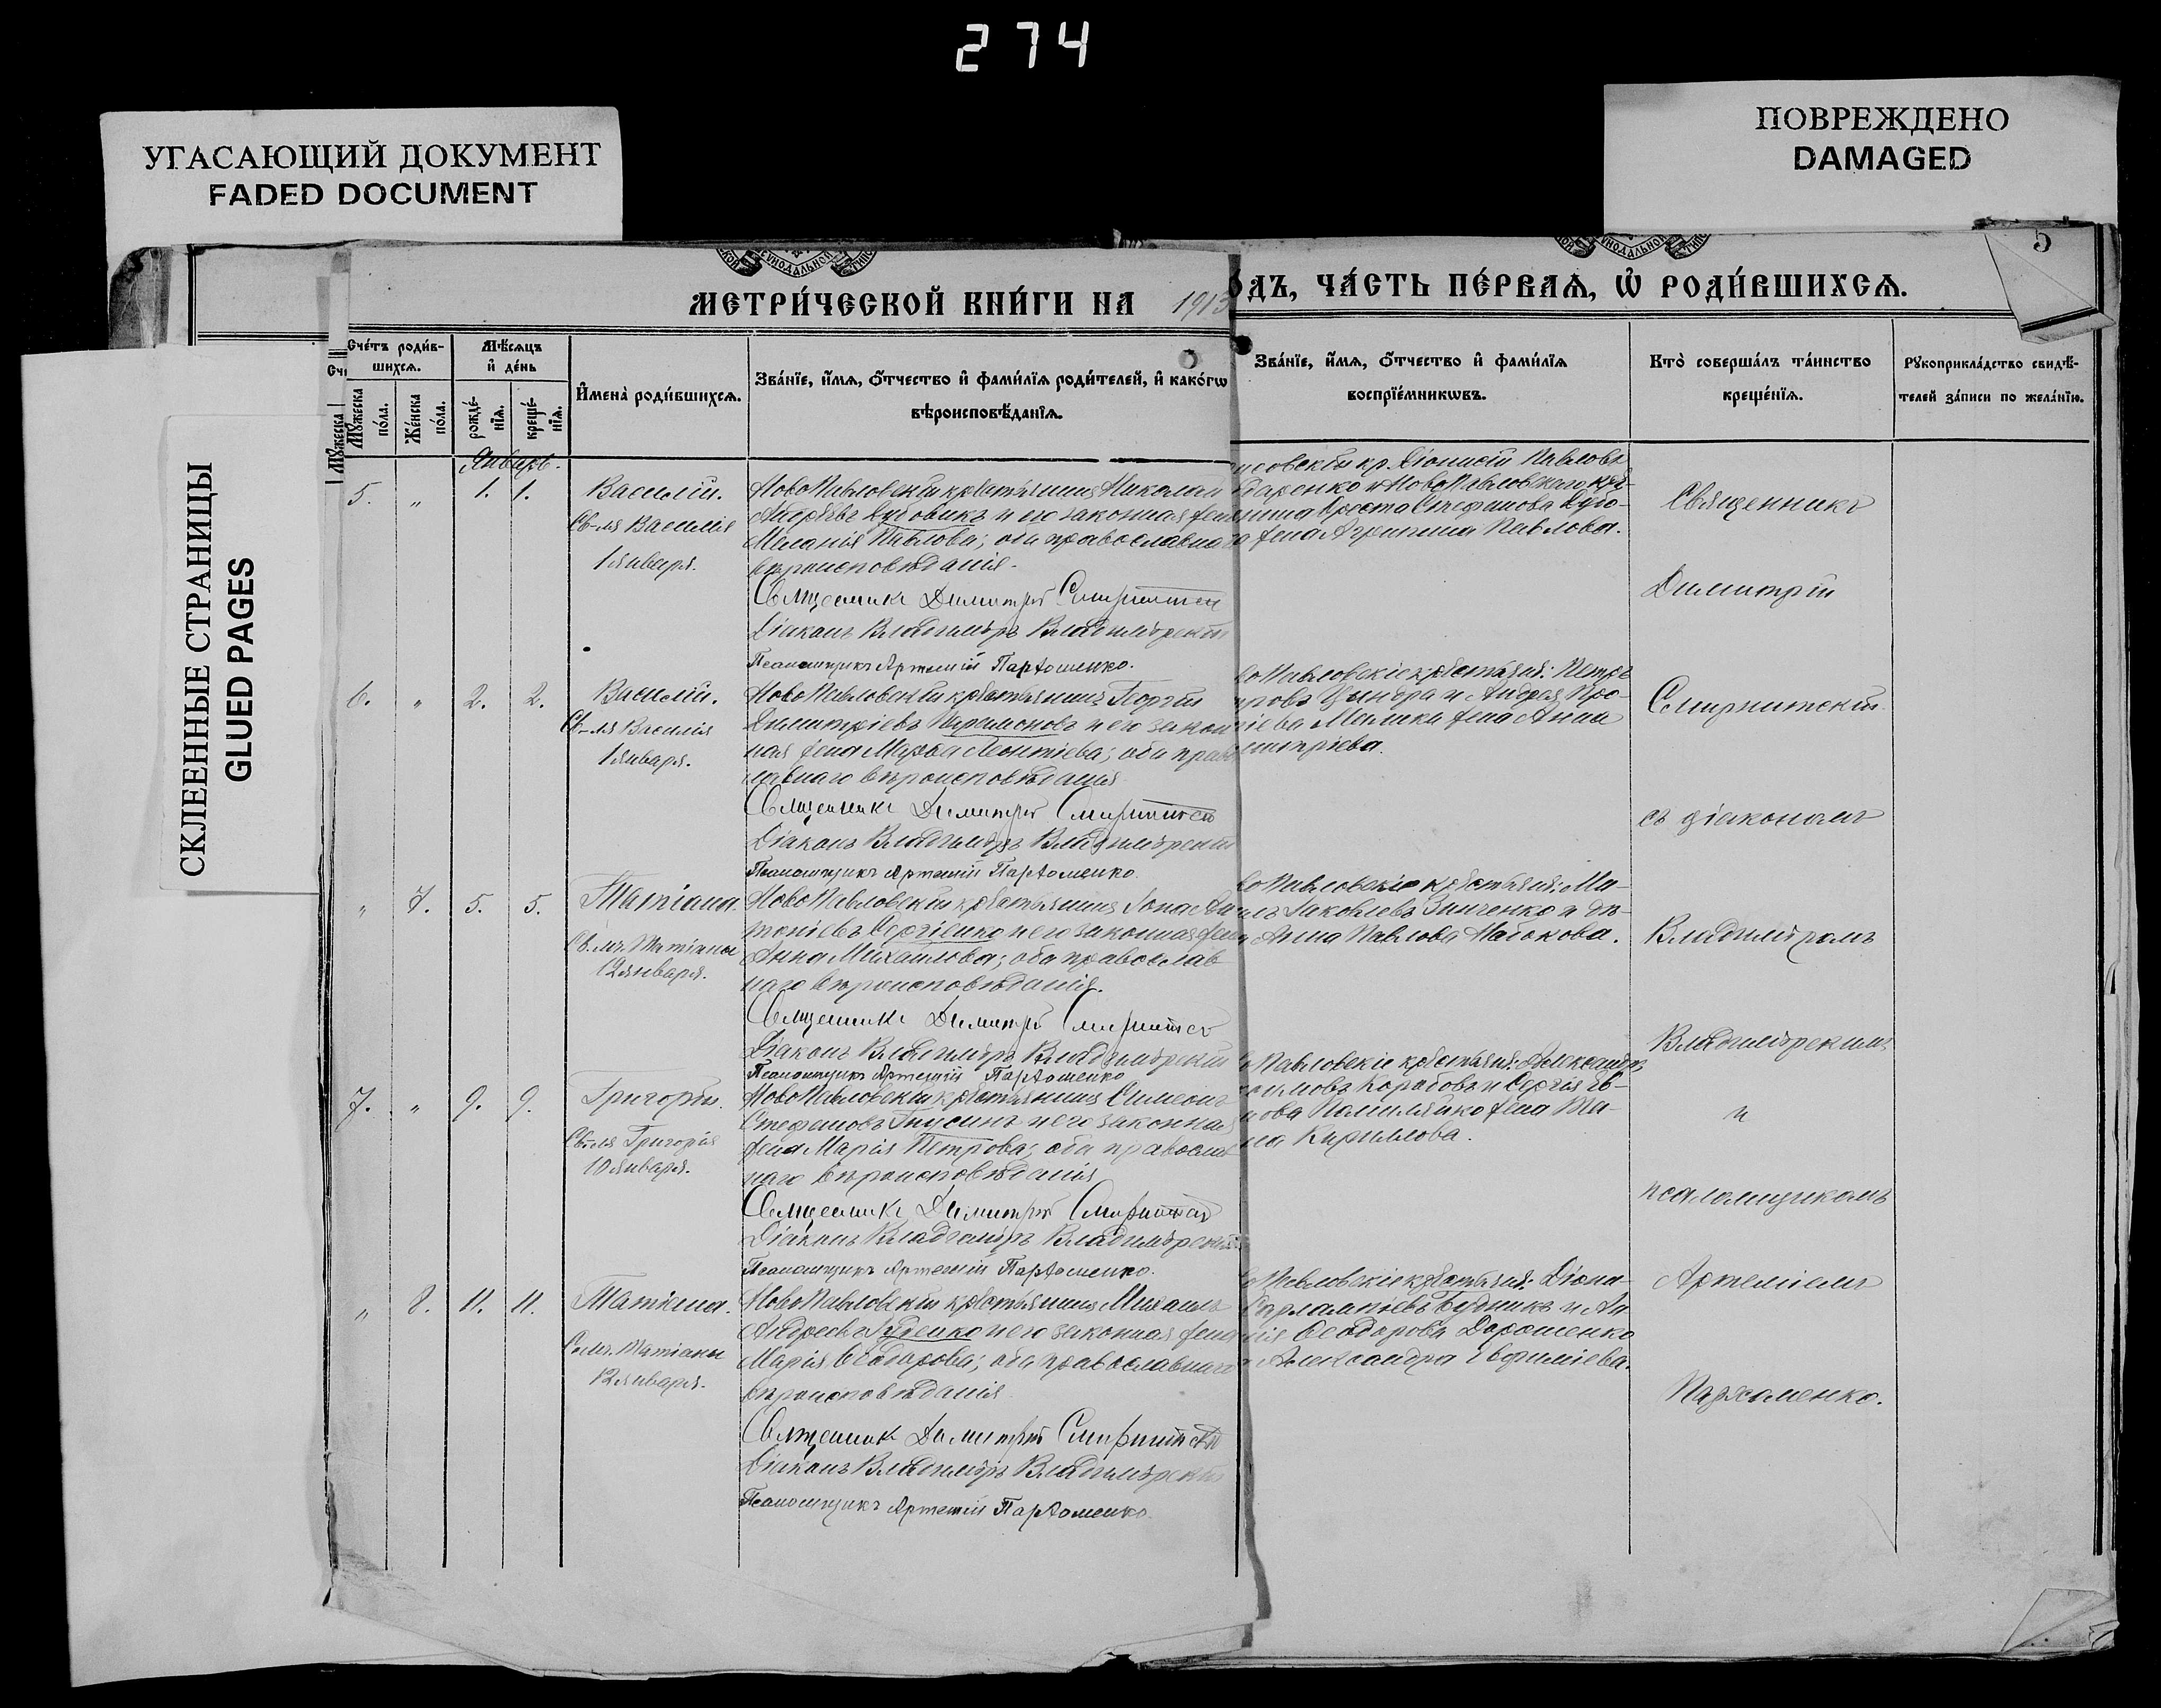 274
УГАСАЮЩИЙ ДОКУМЕНТ
FADED DOCUMENT
ПОВРЕЖДЕНО
DAMAGED
СКЛЕЕННЫЕ СТРАНИЦЫ
GLUED PAGES
5
МЕТРИ́ЧЕСКОЙ КНИ́ГИ НА 1913
О́ДЪ, ЧА́СТЬ ПЕ́РВАѦ, Ѡ҆ РОДИ́ВШИХСѦ.
Сче́тъ роди́в-
шихсѧ.
Мꙋ́жеска по́ла.
Же́нска по́ла.
Мѣ́сѧцъ и҆ де́нь
рожде́-нїѧ.
креще́-нїѧ.
И҆мена̀ роди́вшихсѧ.
Зва́нїе, и҆́мѧ, ѻ҆́тчество и҆ фами́лїѧ роди́телей, и҆ како́гѡ
вѣроисповѣ́данїѧ.
Зва́нїе, и҆́мѧ, ѻ҆́тчество и҆ фами́лїѧ
воспрїе́мникѡвъ.
Кто̀ соверша́лъ та́инство
креще́нїѧ.
Рꙋкоприкла́дство свидѣ́-
телей за́писи по жела́нїю.
Январь.
5. „ 1. 1.
Василій.
Св-ля Василія
1 января.
НовоПавловскій крестьянинъ Николай
Андреевъ Дубовикъ и его законная жена
Меланія Павлова; оба православнаго
вѣроисповѣданія.
Священникъ Димитрій Смирнитскій
Діаконъ Владиміръ Владимірскій
Псаломщикъ Артемій Пархоменко.
кр. Діонисій Павловъ
и НовоПавловскаго кре-
Стефанова Дубо-
жена Агрипина Павлова.
6. „ 2. 2.
Василій.
Св-ля Василія
1 января.
НовоПавловскій крестьянинъ Георгій
Димитріевъ Паримоновъ и его закон
ная жена Марѳа Леонтіева; оба право
славнаго вѣроисповѣданія
Священникъ Димитрій Смирнитскій
Діаконъ Владиміръ Владимірскій
Псаломщикъ Артемій Пархоменко.
воПавловскіе крестьяне: Петръ
Цындра и Андрея Про-
жена Анна
митріева.
„ 7. 5. 5.
Татіана.
Св. мч. Татіаны
12 января.
НовоПавловскій крестьянинъ Іона Ан
тоніевъ Сергіенко и его законная жена
Анна Михайлова; оба православ
наго вѣроисповѣданія.
Священникъ Димитрій Смирнитскій
Діаконъ Владиміръ Владимірскій
Псаломщикъ Артемій Пархоменко
воПавловскіе крестьяне: Ми-
илъ Іаковлевъ Зинченко и дѣ-
Анна Павлова Набокова.
7. „ 9. 9.
Григорій.
Св-ля Григорія
10 января.
НовоПавловскій крестьянинъ Симеонъ
Стефановъ Гнусинъ и его законная
жена Марія Петрова; оба православ
наго вѣроисповѣданія
Священникъ Димитрій Смирнитскій
Діаконъ Владиміръ Владимірскій
Псаломщикъ Артемій Пархоменко.
Павловскіе крестьяне: Александръ
Корабовъ и Сергія Ев-
жена Та-
на Кириллова.
„ 8. 11. 11.
Татіана.
Св. мч. Татіаны
12 января.
НовоПавловскій крестьянинъ Михаилъ
Андреевъ Руденко и его законная жена
Марія Ѳеодорова; оба православнаго
вѣроисповѣданія
Священникъ Димитрій Смирнитскій
Діаконъ Владиміръ Владимірскій
Псаломщикъ Артемій Пархоменко.
Павловскіе крестьяне: Діони-
Харлампіевъ Будникъ и Ан
Ѳеодорова Дорошенко
Александра Евфиміева.
Священникъ
Димитрій
Смирнитскій
съ діакономъ
Владиміромъ
Владимірскимъ
и
псаломщикомъ
Артеміемъ
Пархоменко.